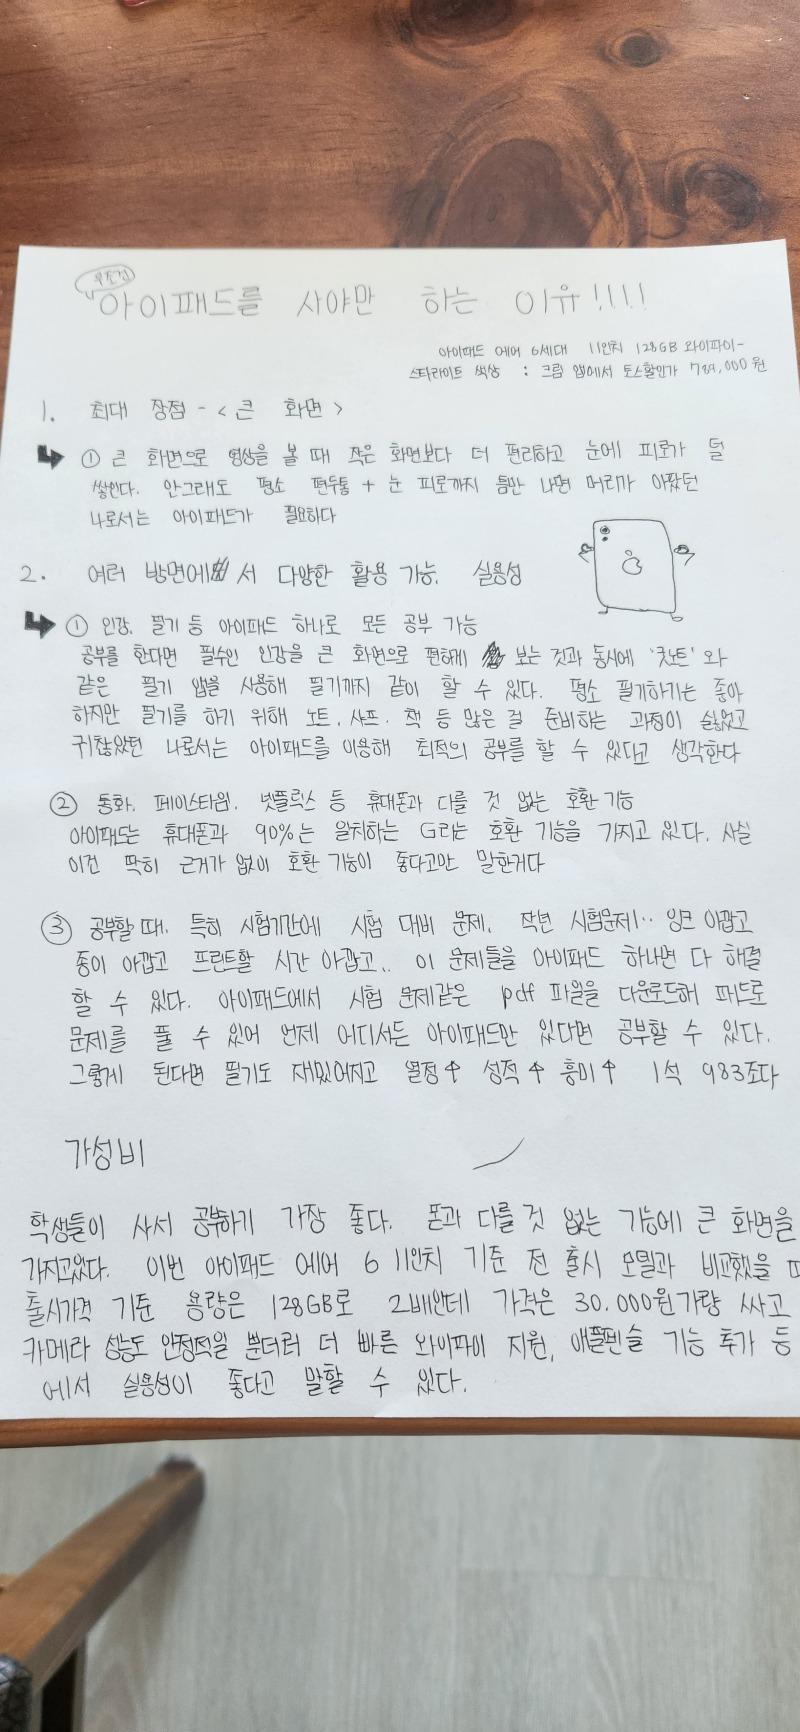 무조건
아이패드를 사야만 하는 이유!!!!
아이패드 에어 6세대 11인치 128GB 와이파이-
스타라이트 색상 : 크림 앱에서 토스할인가 789,000원
1. 최대 장점 - <큰 화면>
① 큰 화면으로 영상을 볼 때 작은 화면보다 더 편리하고 눈에 피로가 덜
쌓인다. 안그래도 평소 편두통 + 눈 피로까지 틈만 나면 머리가 아팠던
나로서는 아이패드가 필요하다
2. 여러 방면에서 다양한 활용 가능, 실용성
① 인강, 필기 등 아이패드 하나로 모든 공부 가능
공부를 한다면 필수인 인강을 큰 화면으로 편하게 보는 것과 동시에 '굿노트'와
같은 필기 앱을 사용해 필기까지 같이 할 수 있다. 평소 필기하기는 좋아
하지만 필기를 하기 위해 노트, 샤프, 책 등 많은 걸 준비하는 과정이 싫었고
귀찮았던 나로서는 아이패드를 이용해 최적의 공부를 할 수 있다고 생각한다
② 통화, 페이스타임, 넷플릭스 등 휴대폰과 다를 것 없는 호환 기능
아이패드는 휴대폰과 90%는 일치하는 호환 기능을 가지고 있다. 사실
이건 딱히 근거가 없이 호환 기능이 좋다고만 말한거다
③ 공부할 때, 특히 시험기간에 시험 대비 문제, 작년 시험문제.. 잉크 아깝고
종이 아깝고 프린트할 시간 아깝고.. 이 문제들을 아이패드 하나면 다 해결
할 수 있다. 아이패드에서 시험 문제같은 pdf 파일을 다운로드해 패드로
문제를 풀 수 있어 언제 어디서든 아이패드만 있다면 공부할 수 있다.
그렇게 된다면 필기도 재밌어지고 열정↑ 성적↑ 흥미↑ 1석 983조다
가성비
학생들이 사서 공부하기 가장 좋다. 폰과 다를 것 없는 기능에 큰 화면을
가지고있다. 이번 아이패드 에어 6 11인치 기준 전 출시 모델과 비교했을 때
출시가격 기준 용량은 128GB로 2배인데 가격은 30.000원가량 싸고
카메라 성능도 안정적일 뿐더러 더 빠른 와이파이 지원, 애플펜슬 기능 추가 등
에서 실용성이 좋다고 말할 수 있다.